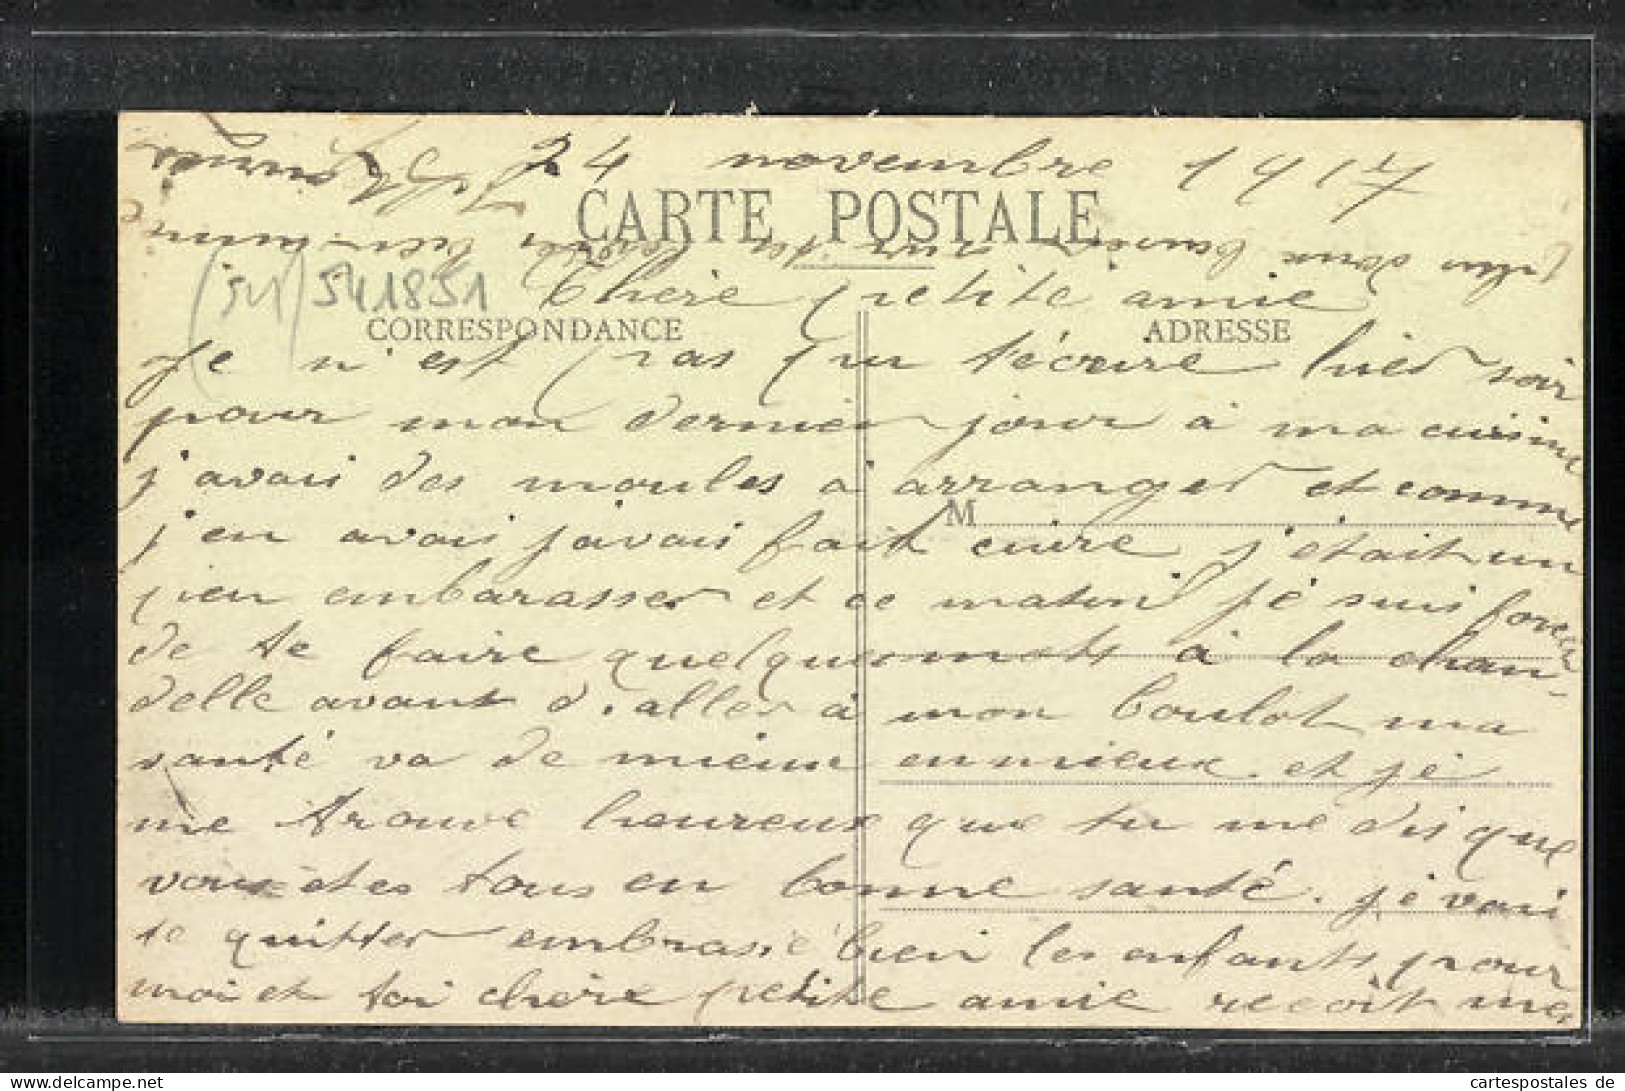 Le 24 novembre 1917
CARTE POSTALE
Chère petite amie
(54) 541851
CORRESPONDANCE ADRESSE
Je n'est pas pu técrire hier soir
pour mon dernier jour à ma cuisine
j'avais des moules à arranger et comme
M
j'en avais javais fait cuire j'était un
peu embarasser et ce matin jé suis forcer
de te faire quelques mots à la chan-
delle avant d'aller à mon boulot ma
santé va de mieux en mieux et jé
me trouve heureux que tu me dis que
vous etes tous en bonne santé. jé vais
te quitter embrasse bien les enfants pour
moi et toi chère petite amie recoit mes
cartespostales.de
www.cartespostales.de